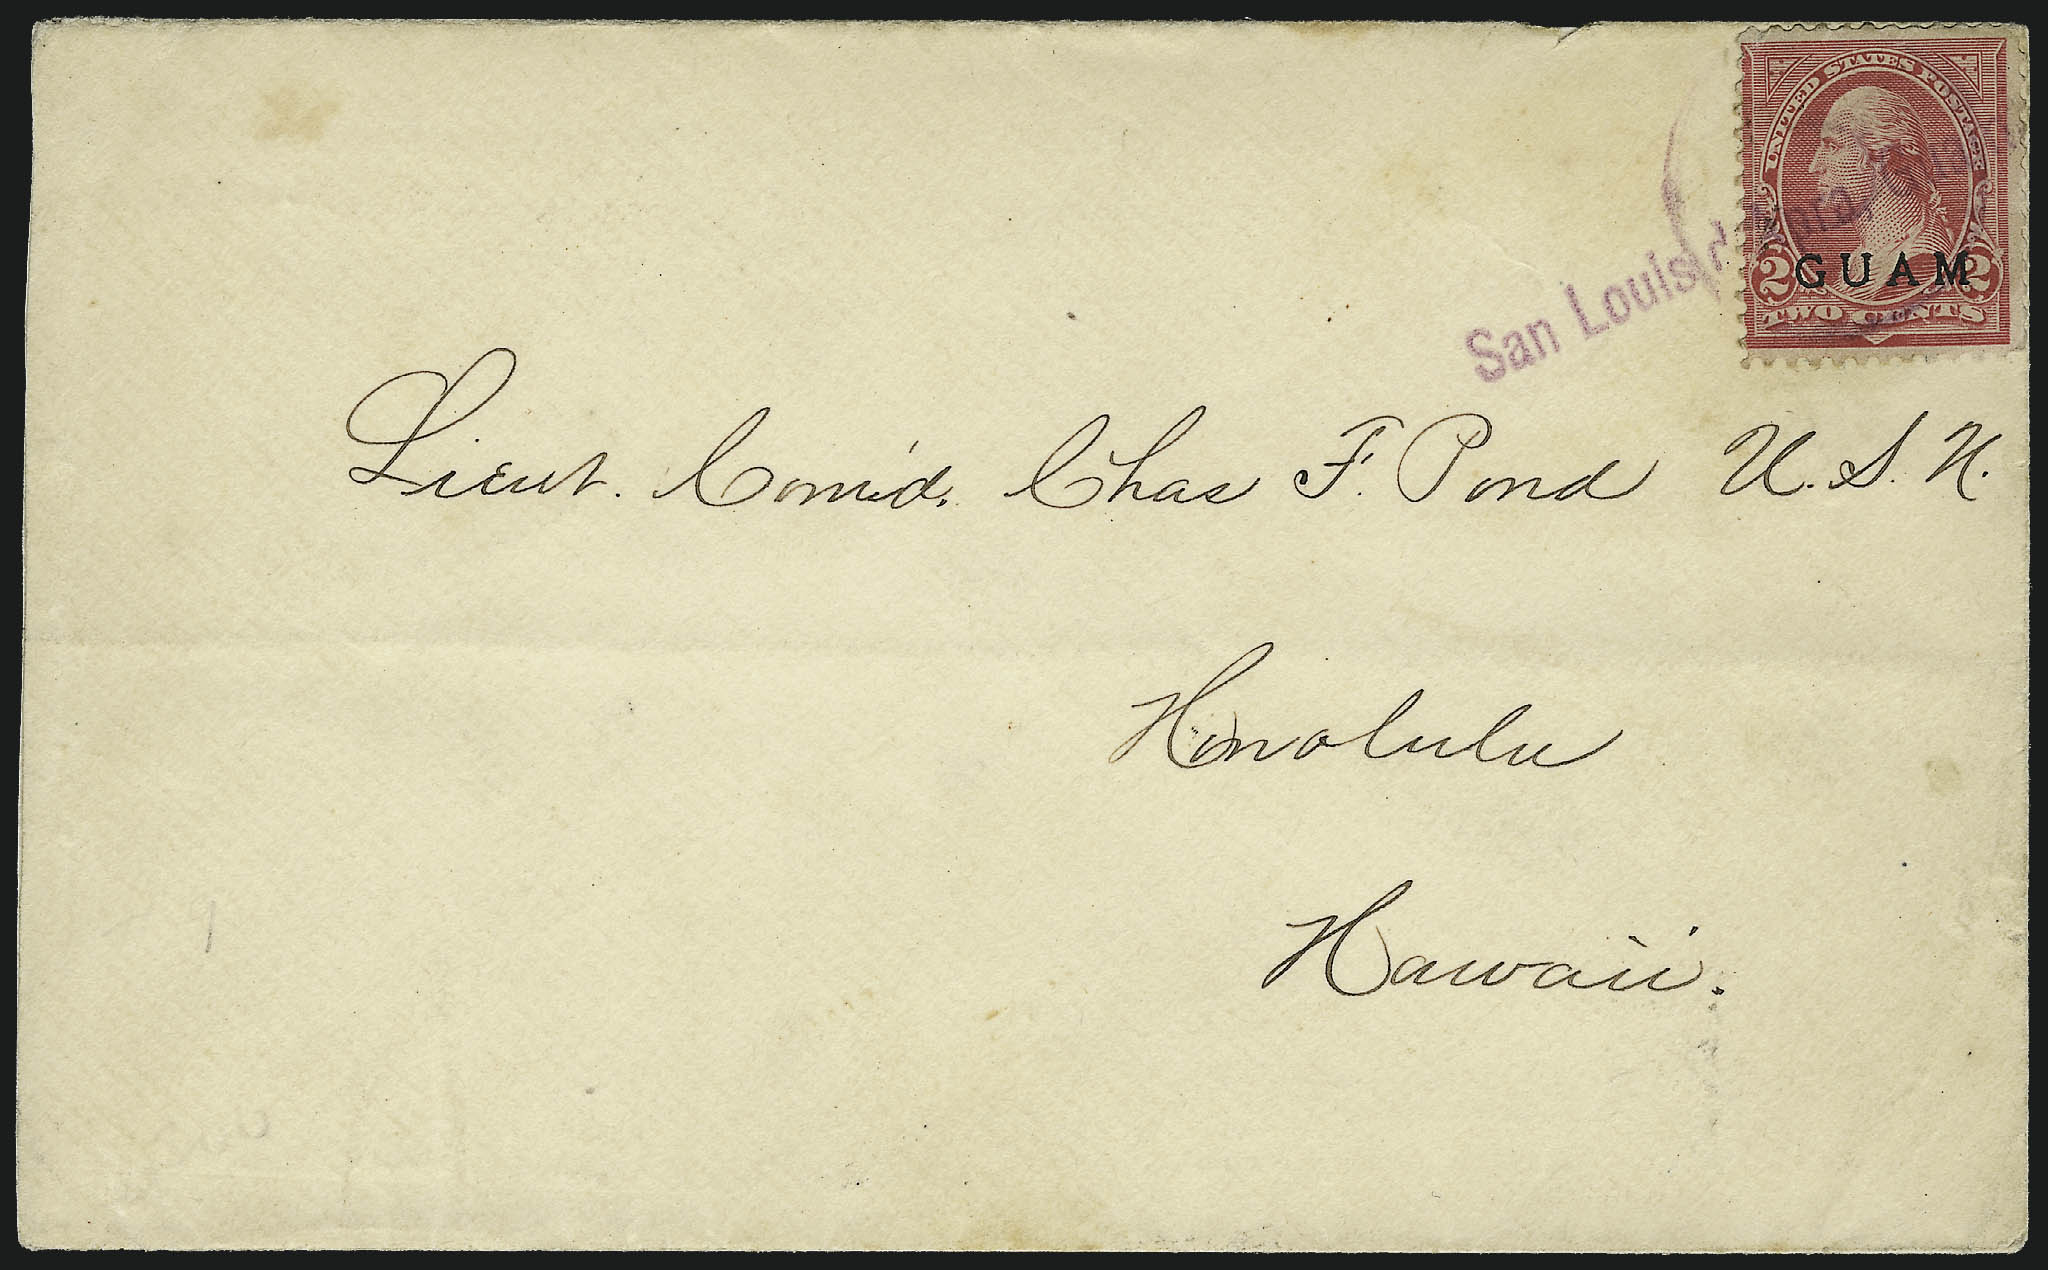 UNITED STATES POSTAGE
2 GUAM 2
TWO CENTS
San Louis d'
Lieut. Com'd. Chas F. Pond U.S.N.
Honolulu
Hawaii.